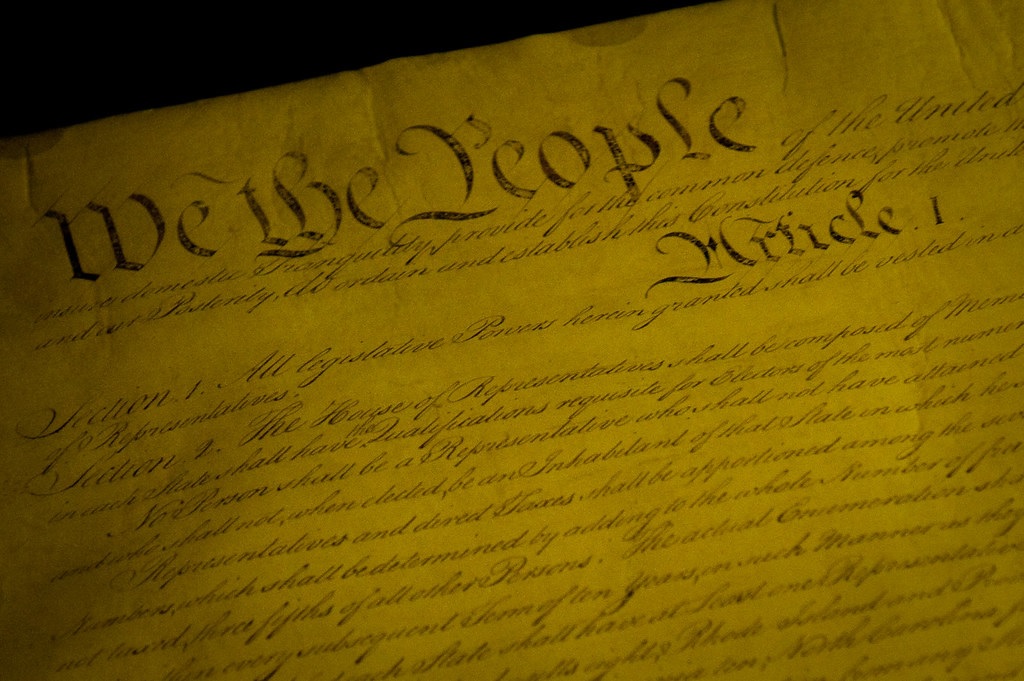 We the People of the United
insure domestic Tranquility, provide for the common defence, promote
and our Posterity, do ordain and establish this Constitution for the Unite
Article. I.
Section. 1. All legislative Powers herein granted shall be vested in a
of Representatives.
Section. 2. The House of Representatives shall be composed of Mem
in each State shall have the Qualifications requisite for Electors of the most numer
No Person shall be a Representative who shall not have attained
and who shall not, when elected, be an Inhabitant of that State in which he
Representatives and direct Taxes shall be apportioned among the sev
Numbers, which shall be determined by adding to the whole Number of free
not taxed, three fifths of all other Persons. The actual Enumeration sha
within every subsequent Term of ten Years, in such Manner as they
each State shall have at Least one Representative
eight, Rhode Island and
ten, North Carolina